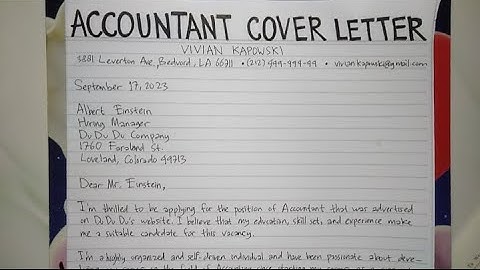 ACCOUNTANT COVER LETTER
VIVIAN KAPOWSKI
3881 Leverton Ave, Bedword, LA 66711 • (212) 999-999-99 • viviankapowski@gmail.com
September 17, 2023
Albert Einstein
Hiring Manager
Du Du Du Company
1760 Faraland St.
Loveland, Colorado 49713
Dear Mr. Einstein,
I'm thrilled to be applying for the position of Accountant that was advertised
on Du Du Du's website. I believe that my education, skill set, and experience make
me a suitable candidate for this vacancy.
I'm a highly organized and self-driven individual and have been passionate about deve-